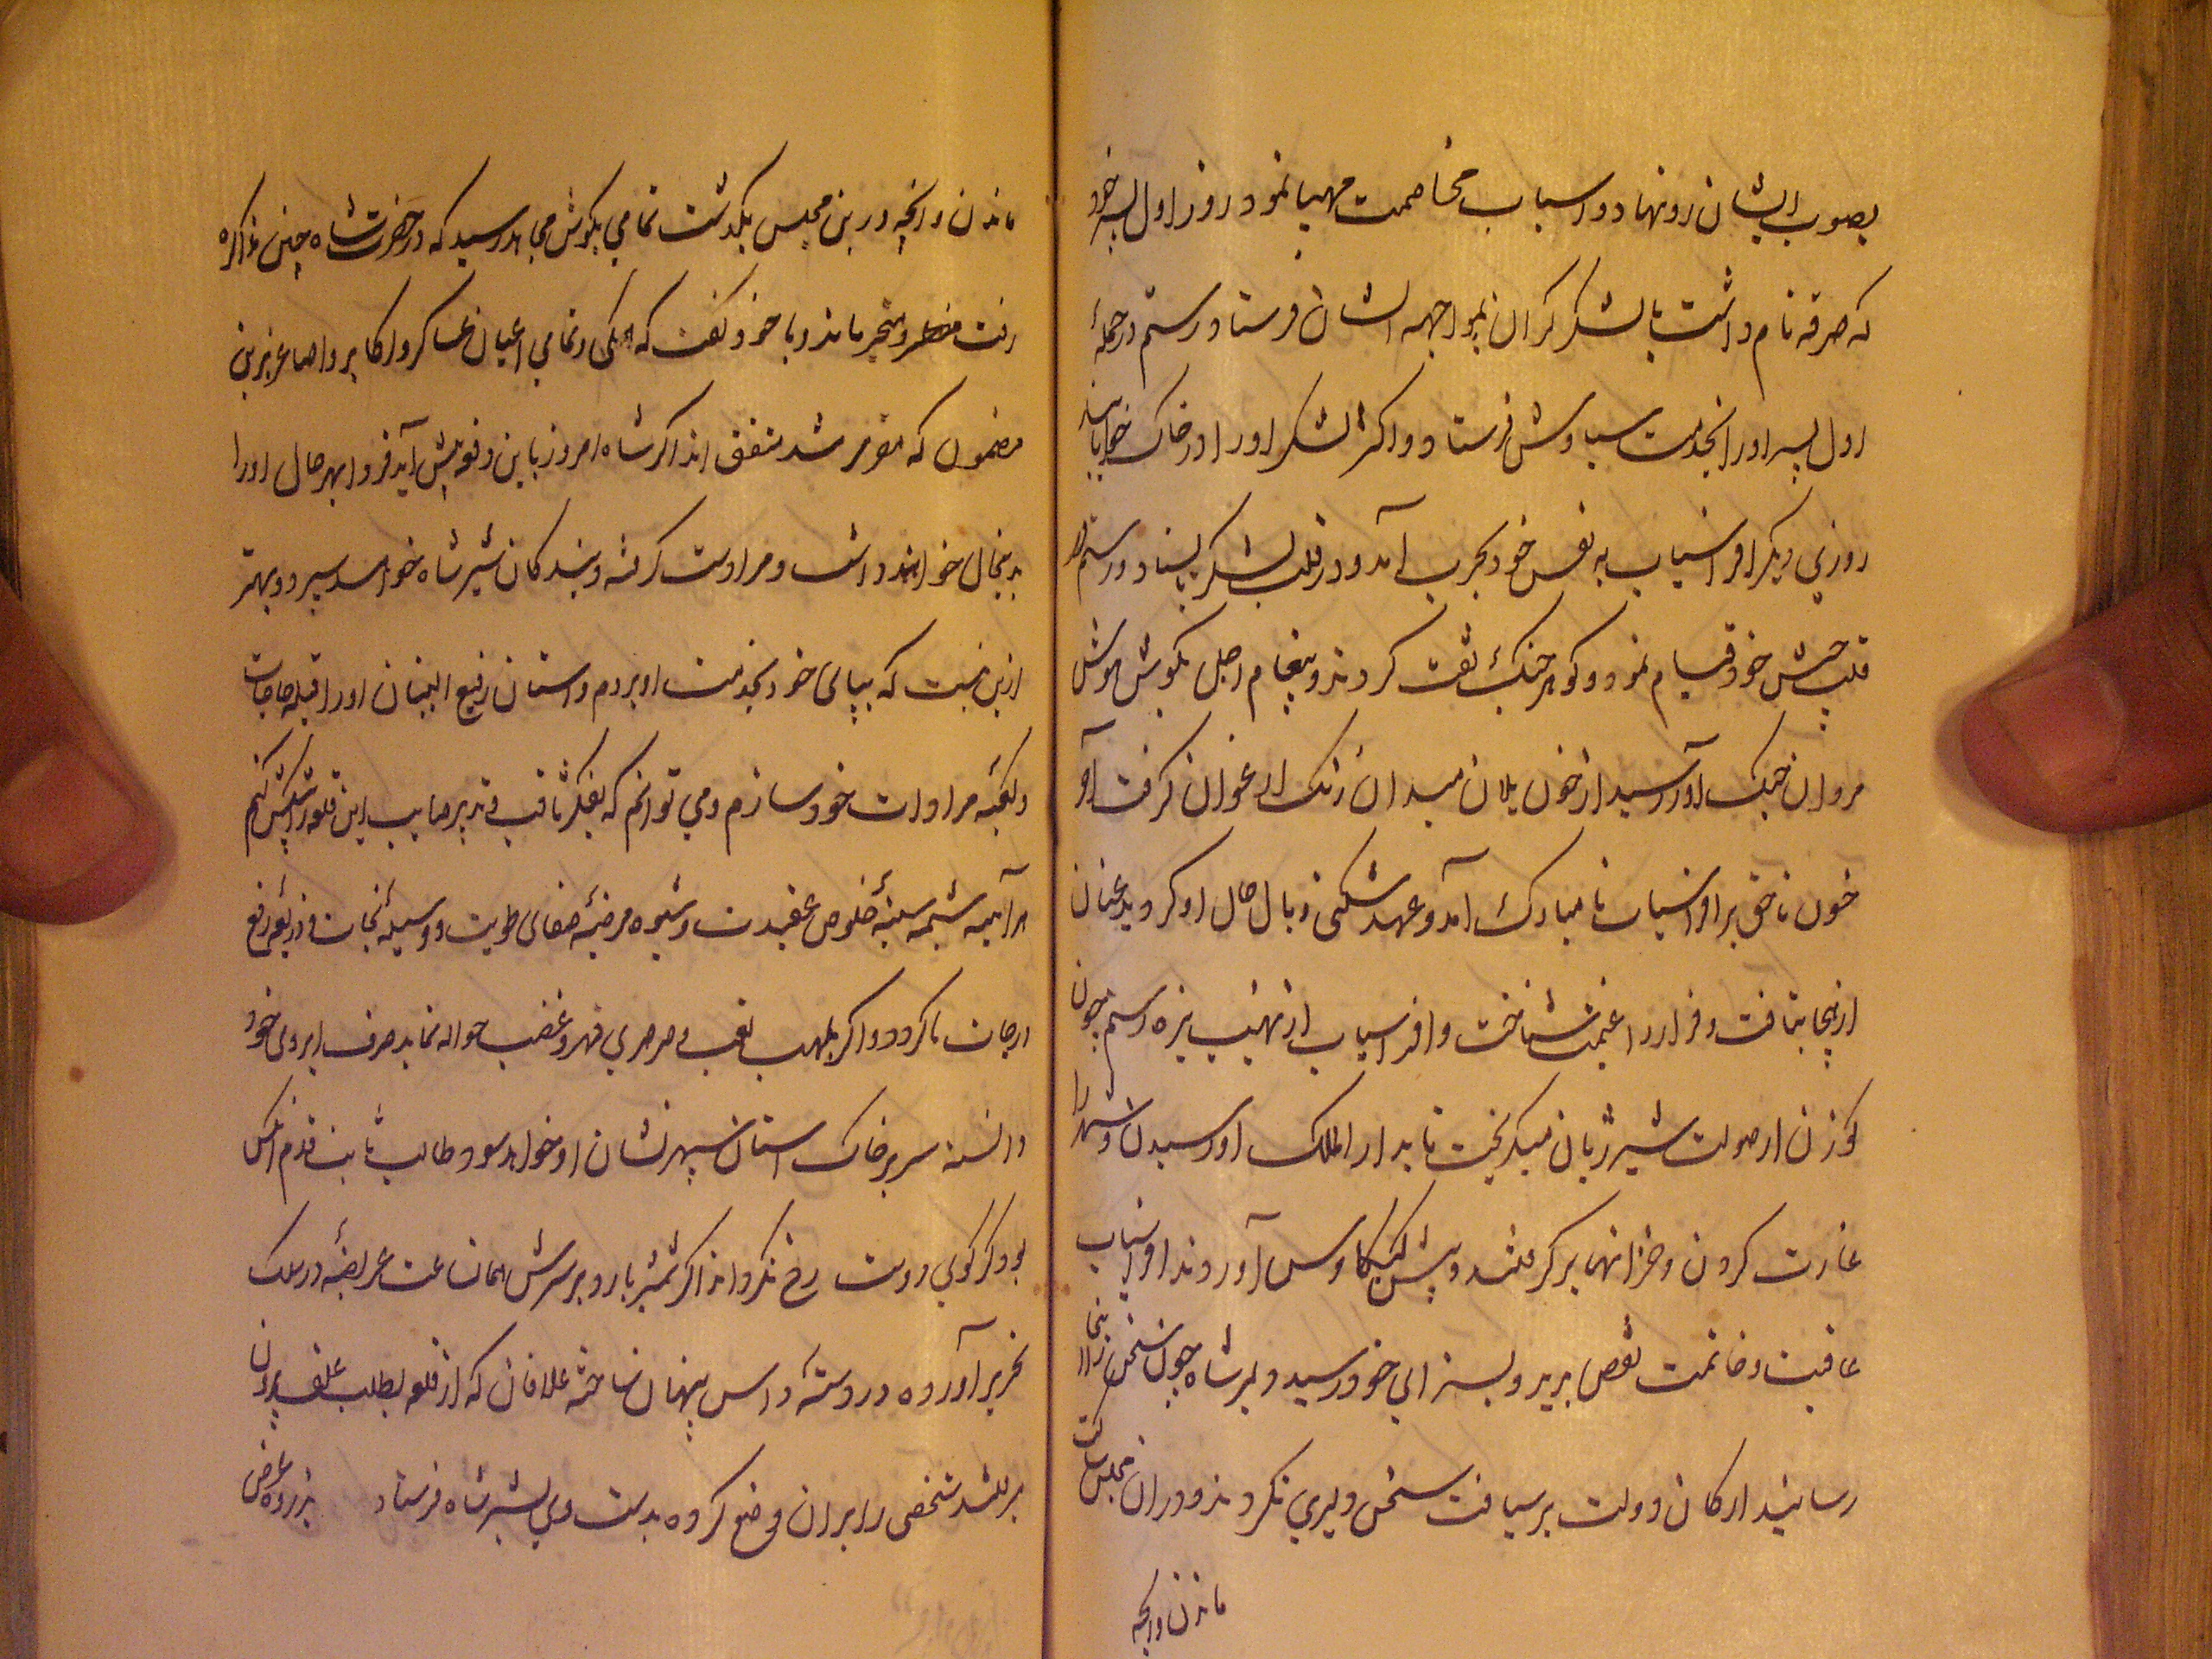 بصوب ایشان رو نهاد و اسباب مخاصمت مهیا نمود روز اول پسر خود
که صرقه نام داشت با لشکر کران بمواجهه ایشان فرستاد رستم در حملهٔ
اول پسر اورا بخدمت سیاوش فرستاد و اکثر لشکر اورا در خاک خوابانید
روزی دیکر افراسیاب به نفس خود بحرب آمد و در قلب لشکر بیستاد و رستم در
قلب جیش خود قیام نمود و کوهر جنک تفت کردند و پیغام اجل بکوش هوش
مردان جنک آور رسید از خون یلان میدان رنک ارغوان کرفت آخر
خون ناحق بر افراسیاب نامبارک آمد و عهد شکنی وبال حال او کردید عنان
ازینجا بتافت و فرار را غنیمت شناخت و افراسیاب از نهیب نیزه رستم چون
کوزن از صولت شیر ژیان میکریخت تا بدار الملک او رسیدن و شهر را
غارت کردن و خزانهاء بر کرفتند و پیش کیکاوس آوردند افراسیاب
عاقبت وخامت نقص بدید و بسزای خود رسید و شیر شاه چون سخن را اینجا
رسانید ارکان دولت بر سیاقت سخن دلیری نکردند و در ان مجلس ساکت
ماندن و انچه
ماندن و انچه درین مجلس بکذشت تمامی بکوش مجاهد رسید که در حضرت شاه چنین مذاکره
رفت مضطر و متحیر ماند و با خود کفت که الکی و تمامی اعیان عساکر و اکابر و اصاغر برین
مضمون که مقرر شد متفق اند اکر شاه امروز باین وقوع پیش آید فردا بهر حال اورا
بدینحال خواهند داشت و مرا دست کرفته و بندکان شیر شاه خواهند سپرد و بهتر
ازین نیست که بپای خود بخدمت او بردم و استان رفیع البنیان اورا قبله حاجات
و کعبه مرادات خود سازم و می توانم که بفکر ثاقب و تدبیر صایب این قلعه را پیشکش کنم
هر آیینه شیمه سنیّه خلوص عقیدت و شیوه مرضیّه صفای طویت و وسیله نجات و ذریعه رفع
درجات ما کردد و اکر بلهب تعب و صرصری قهر و غضب حواله نماید صرف ابروی خود
دانسته سر بر خاک استان سپهر نشان او خواهد سود و طالب ثابت قدم انکس
بود کر کوی دوست رخ نکرداند اکر شمشیر بارد بر سرش همان ساعت عریضهٔ در سلک
تحریر آورده در دستهٔ داس پنهان ساخته علافان که از قلعه بطلب علف بیرون
بر فتند شخصی را بران وضع کرده بدست وی بشیر شاه فرستاد عرض